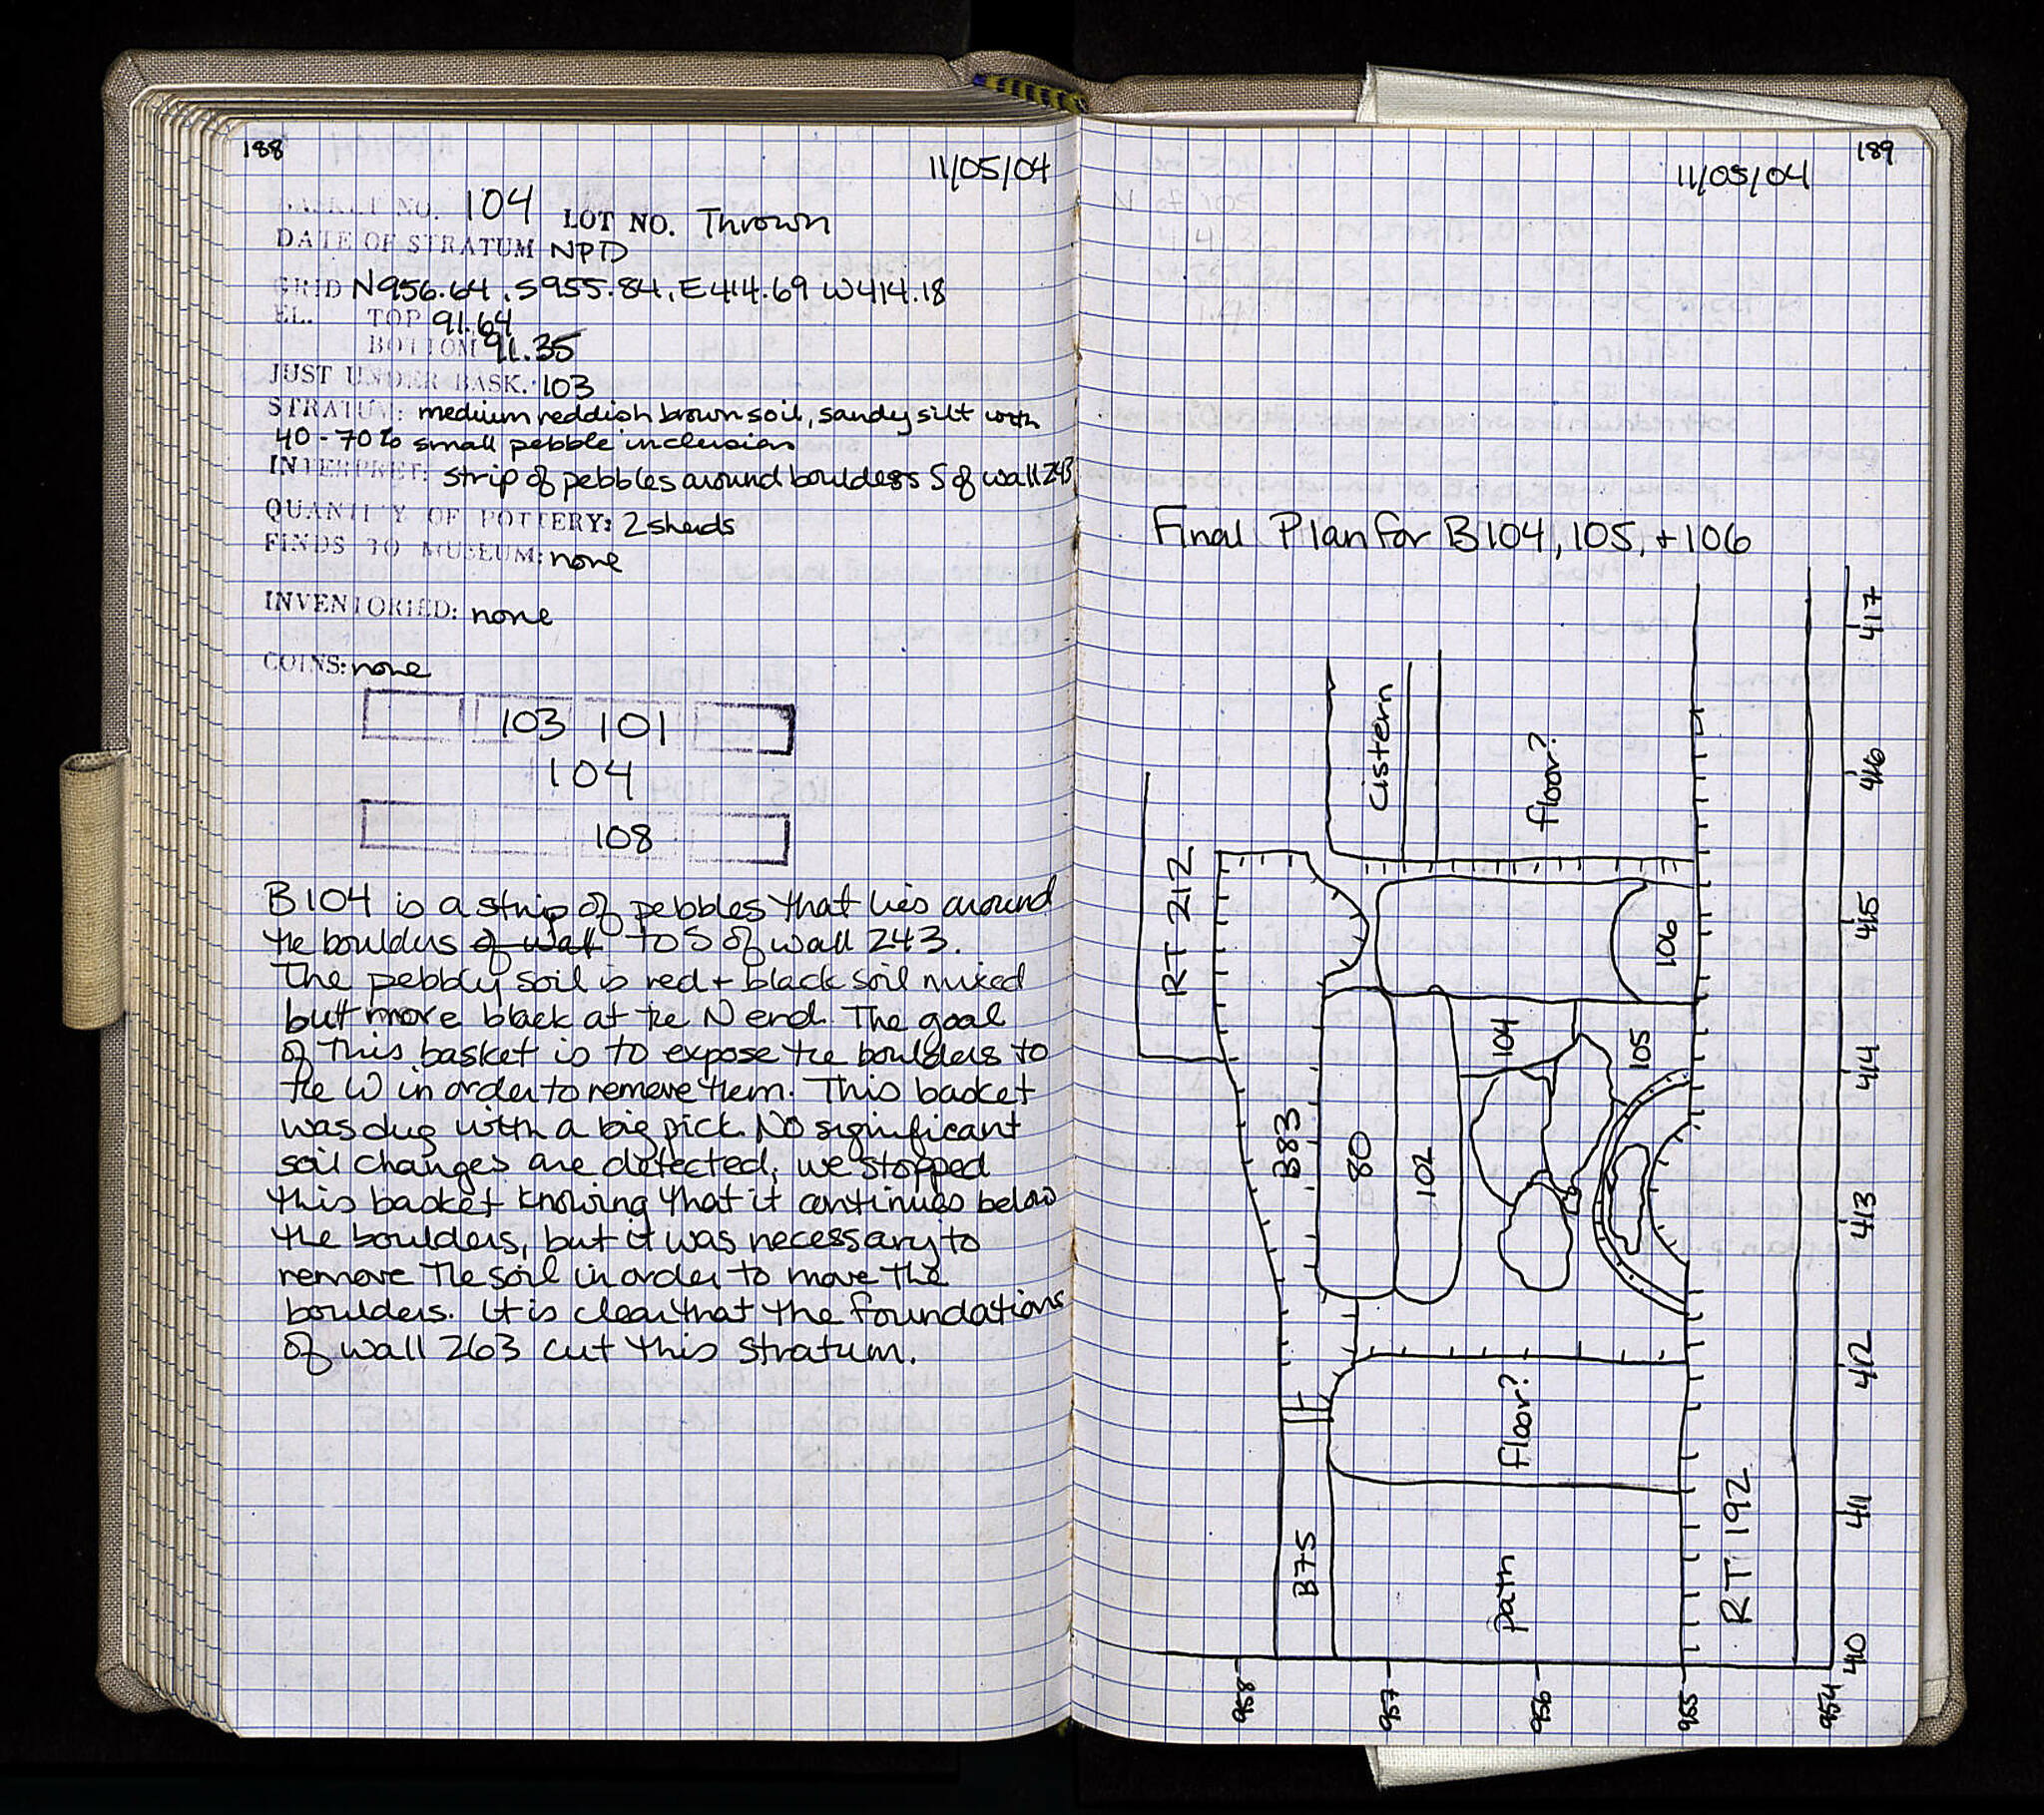 188
11/05/04
BASKET NO. 104 LOT NO. Thrown
DATE OF STRATUM NPD
GRID N956.64, S955.84, E414.69 W414.18
EL. TOP 91.64
BOTTOM 91.35
JUST UNDER BASK.: 103
STRATUM: medium reddish brown soil, sandy silt with
40-70% small pebble inclusion
INTERPRET: strip of pebbles around boulders S of wall 243
QUANTITY OF POTTERY: 2 sherds
FINDS TO MUSEUM: none
INVENTORIED: none
COINS: none
103 101
104
108
B104 is a strip of pebbles that lies around
the boulders of wall to S of wall 243.
The pebbly soil is red + black soil mixed
but more black at the N end. The goal
of this basket is to expose the boulders to
the W in order to remove them. This basket
was dug with a big pick. No significant
soil changes are detected; we stopped
this basket knowing that it continues below
the boulders, but it was necessary to
remove the soil in order to move the
boulders. It is clear that the foundations
of wall 263 cut this stratum.
11/05/04
189
Final Plan for B104, 105, + 106
RT 212
Cistern
floor?
106
104
105
B83
80
102
floor?
B75
Path
RT 192
417
416
415
414
413
412
411
410
958
957
956
955
954